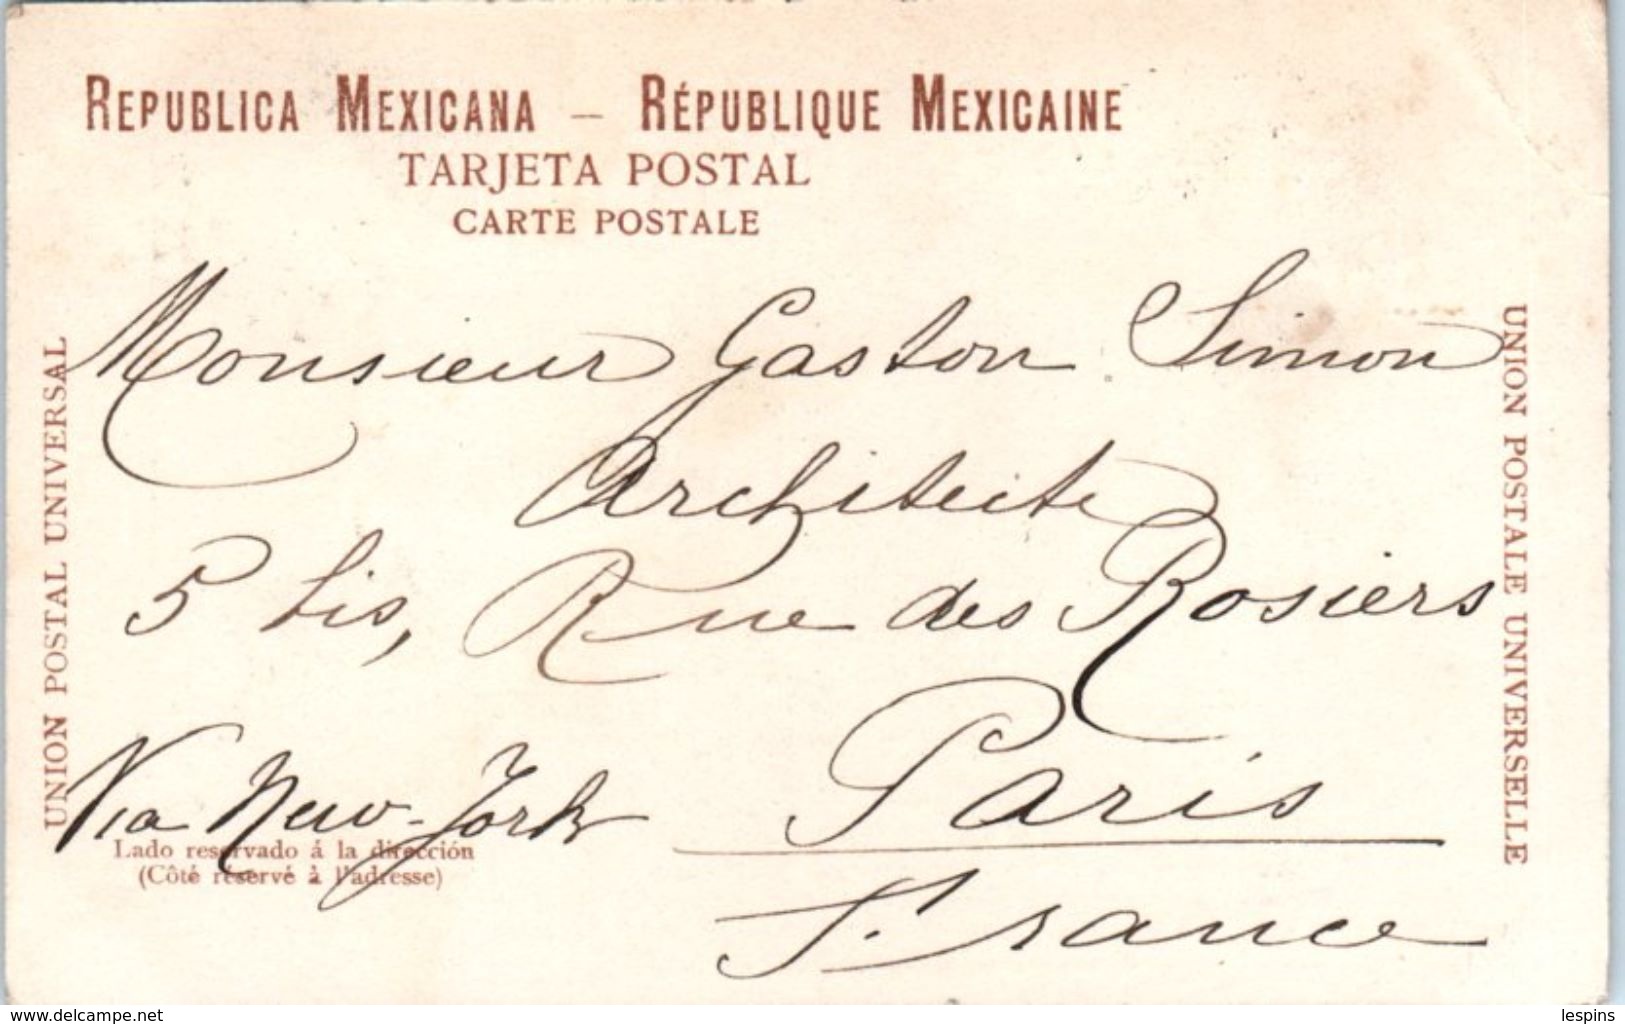 REPUBLICA MEXICANA – RÉPUBLIQUE MEXICAINE
TARJETA POSTAL
CARTE POSTALE
UNION POSTAL UNIVERSAL
UNION POSTALE UNIVERSELLE
Monsieur Gaston Simon
Architecte
5 bis, Rue des Rosiers
Paris
France
Via New-York
Lado reservado á la dirección
(Côté réservé à l'adresse)
www.delcampe.net
lespins